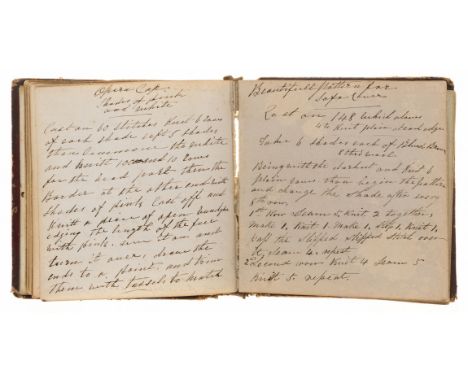 Opera Cap
Shades of pink
and white
Cast on 60 stitches Knit 6 rows
of each shade up 5 shades
then Commence the white
and Knit 100 10 rows
for the head part then the
Border at the other end with
shades of pink Cast off and
Knit a piece of open
edging the length of the
with pink. sew it on and
turn it over, draw the
ends to a point, and trim
them with Tassels to match
Beautiful pattern for
Sofa Cover
Cast on 148 which allows
4 to Knit plain at each edge
Take 6 shades each of
Begin with the darkest and Knit 6
plain rows then begin the pattern
and change the Shade after every
8th row.
1st Row Seam 4 Knit 2 together,
Make 1, Knit 1. Make 1, slip 1, Knit 1,
Cast the Slipped stitch over
it, seam 4, repeat
2 Second row Knit 4 Seam 5
Knit 5. repeat.